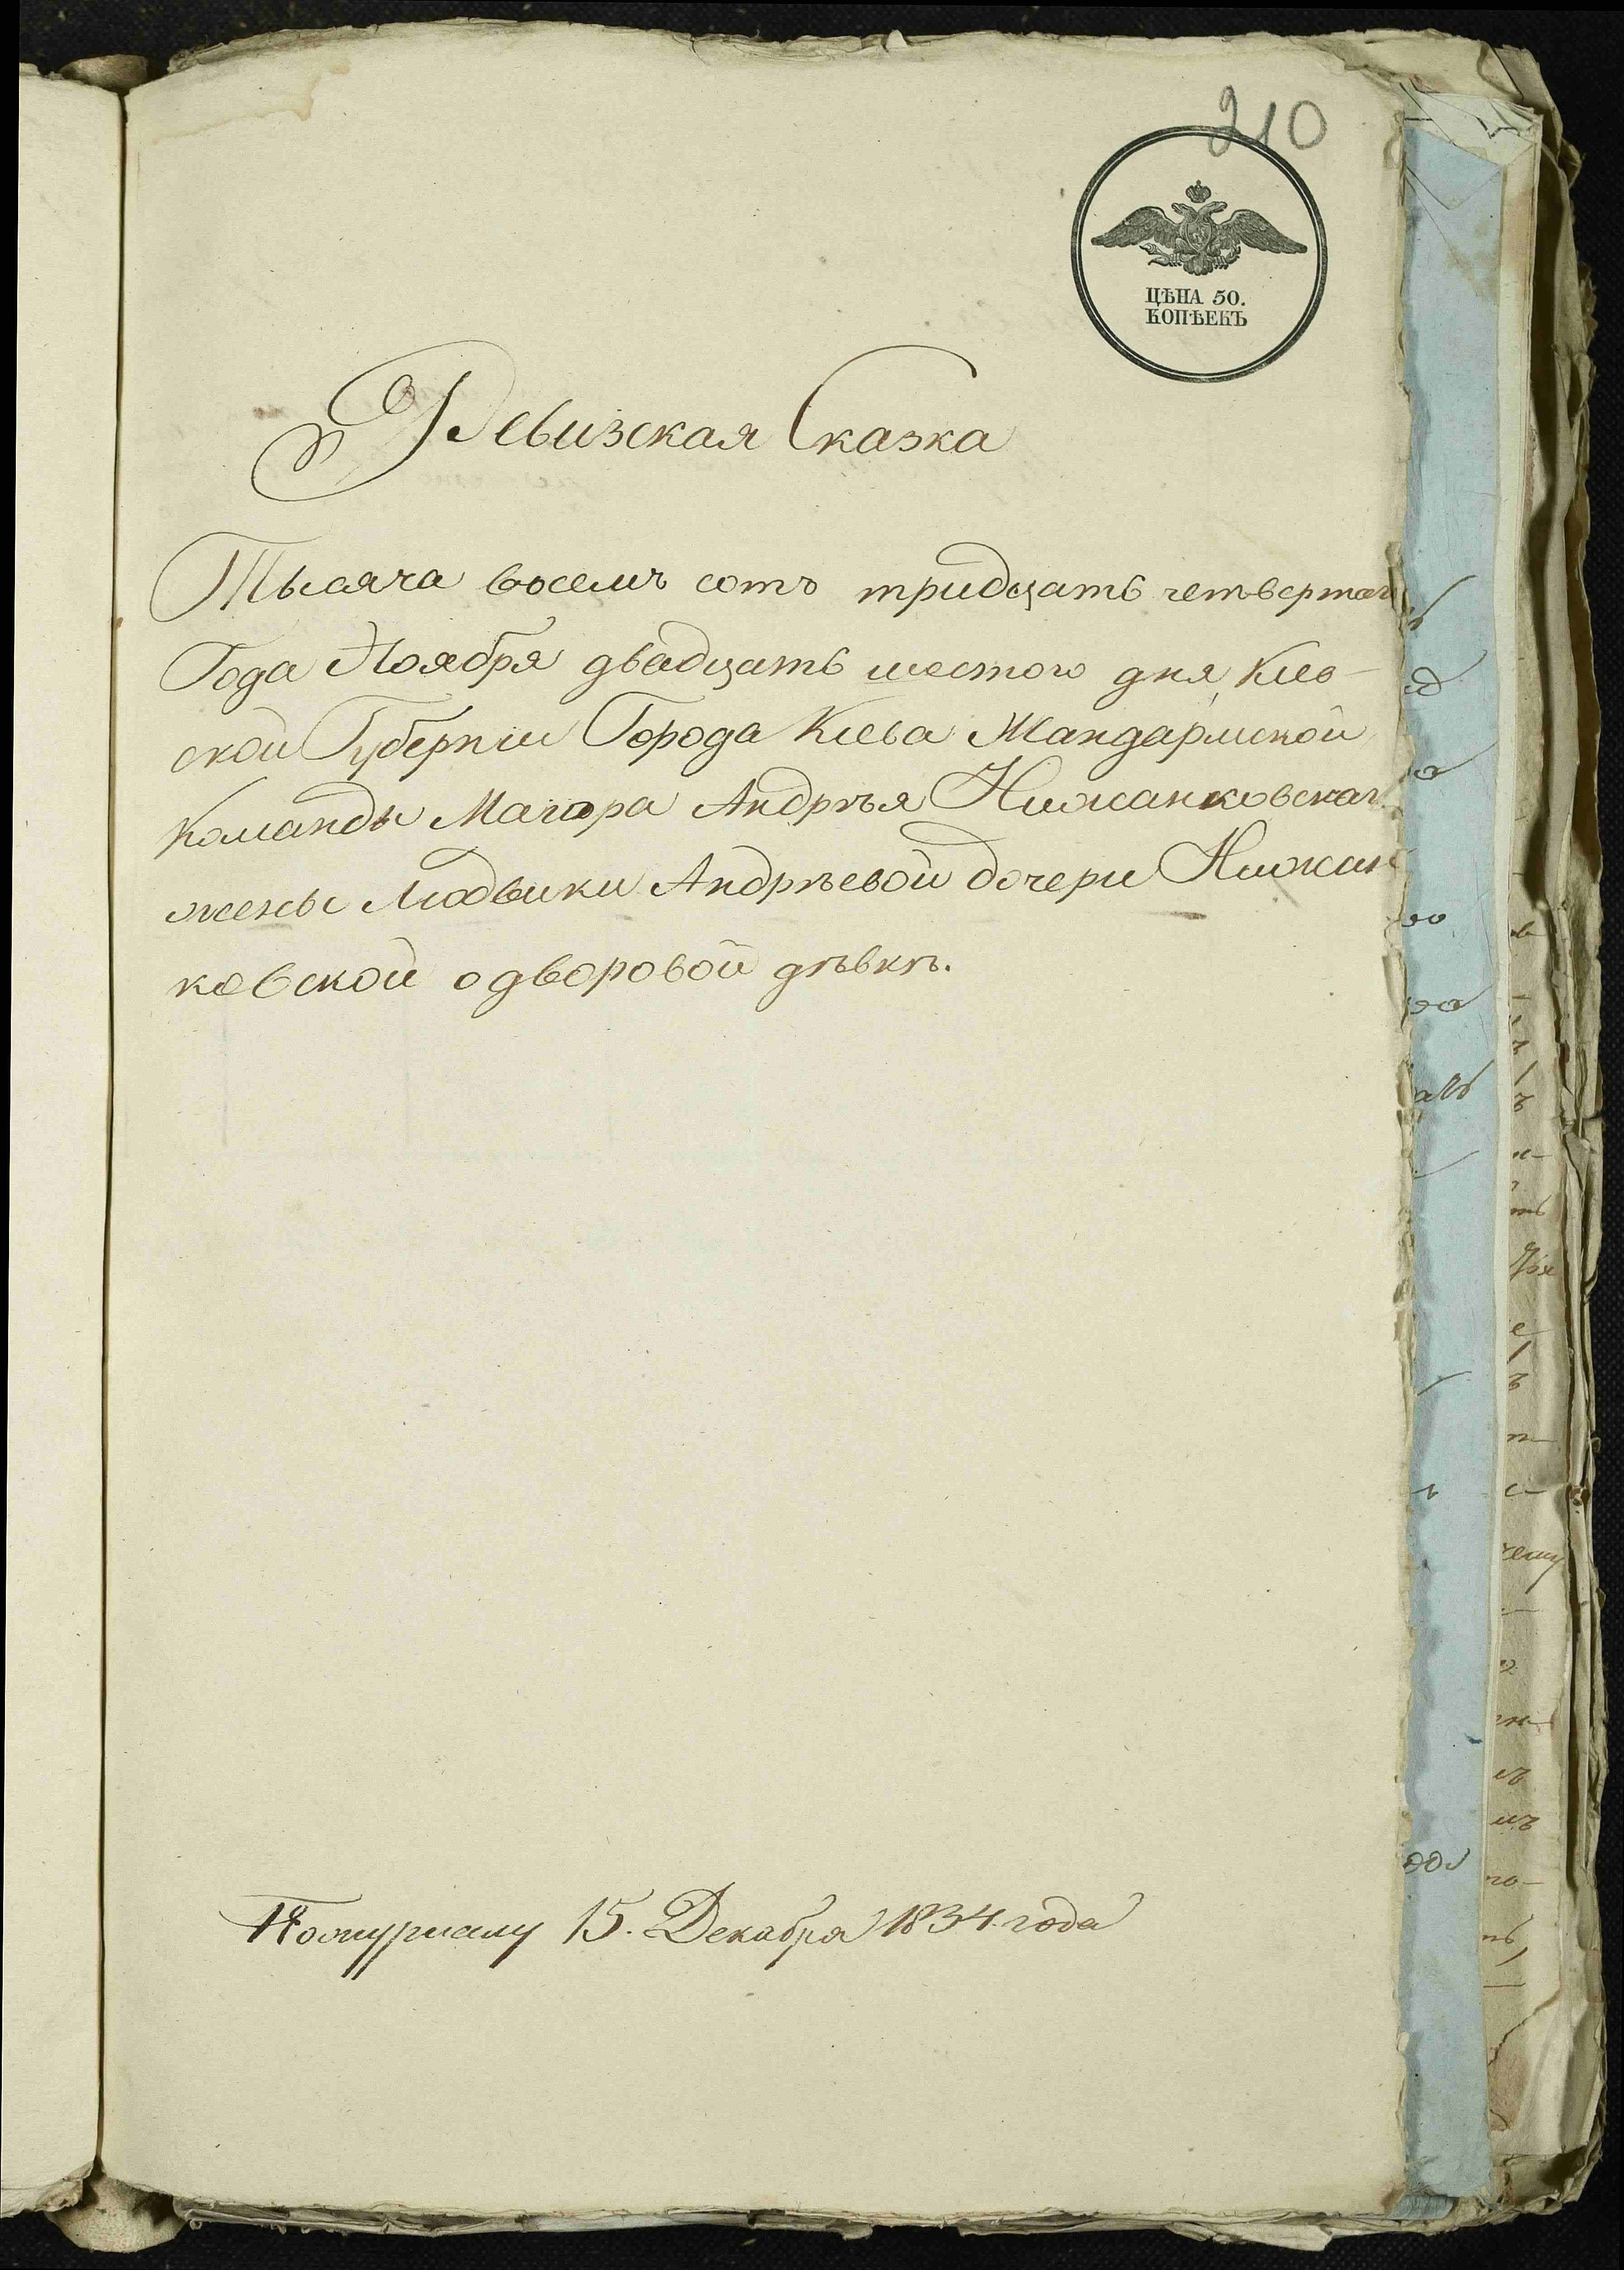 210
ЦѢНА 50.
КОПѢЕКЪ
Ревизская Сказка
Тысяча восемь сотъ тридцать четвертаг
Года Ноября двадцать шестого дня Кіев-
ской Губерніи Города Кіева Жандармской
Команды Маіора Андрѣя Нижанковскаг
жены Людвики Андрѣевой дочери Нижан
ковской о дворовой дѣвкѣ.
15. Декабря 1834. года